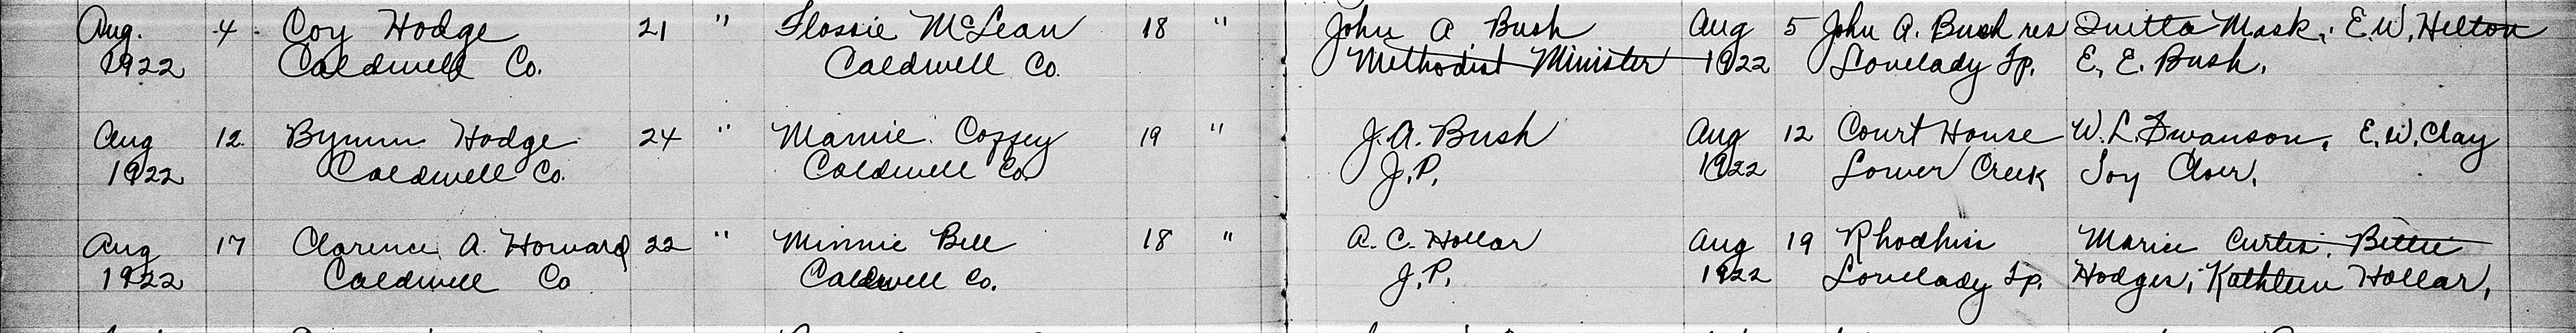 Aug. 4 Coy Hodge 21 " Flossie McLean 18 " John A. Bush Aug 5 John A. Bush res Quitta Mask, E.W. Helton
1922 Caldwell Co. Caldwell Co. Methodist Minister 1922 Lovelady Tp. E. E. Bush.
Aug 12 Bynum Hodge 24 " Mamie Coffey 19 " J. A. Bush Aug 12 Court House W. L. Swanson, E. W. Clay
1922 Caldwell Co. Caldwell Co. J. P. 1922 Lower Creek Joy Cloer.
Aug 17 Clarence A. Howard 22 " Minnie Bell 18 " A. C. Hollar Aug 19 Rhodhiss Marie Curtis, Bettie
1922 Caldwell Co Caldwell Co. J. P. 1922 Lovelady Tp. Hodges, Kathleen Hollar,